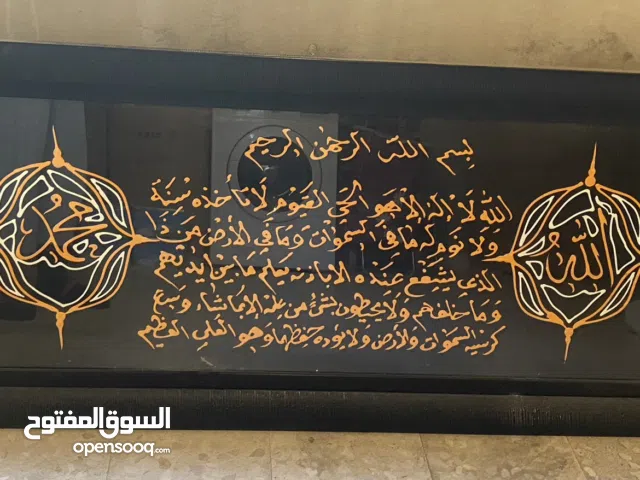 بسم الله الرحمن الرحيم
الله لا إله إلا هو الحي القيوم لا تأخذه سنة
ولا نوم له ما في السموات وما في الأرض من ذا
الذي يشفع عنده الا باذنه يعلم ما بين ايديهم
وما خلفهم ولا يحيطون بشيء من علمه الا بما شاء وسع
كرسيه السموات والأرض ولا يوده حفظهما وهو العلي العظيم
الله
محمد
السوق المفتوح
opensooq.com